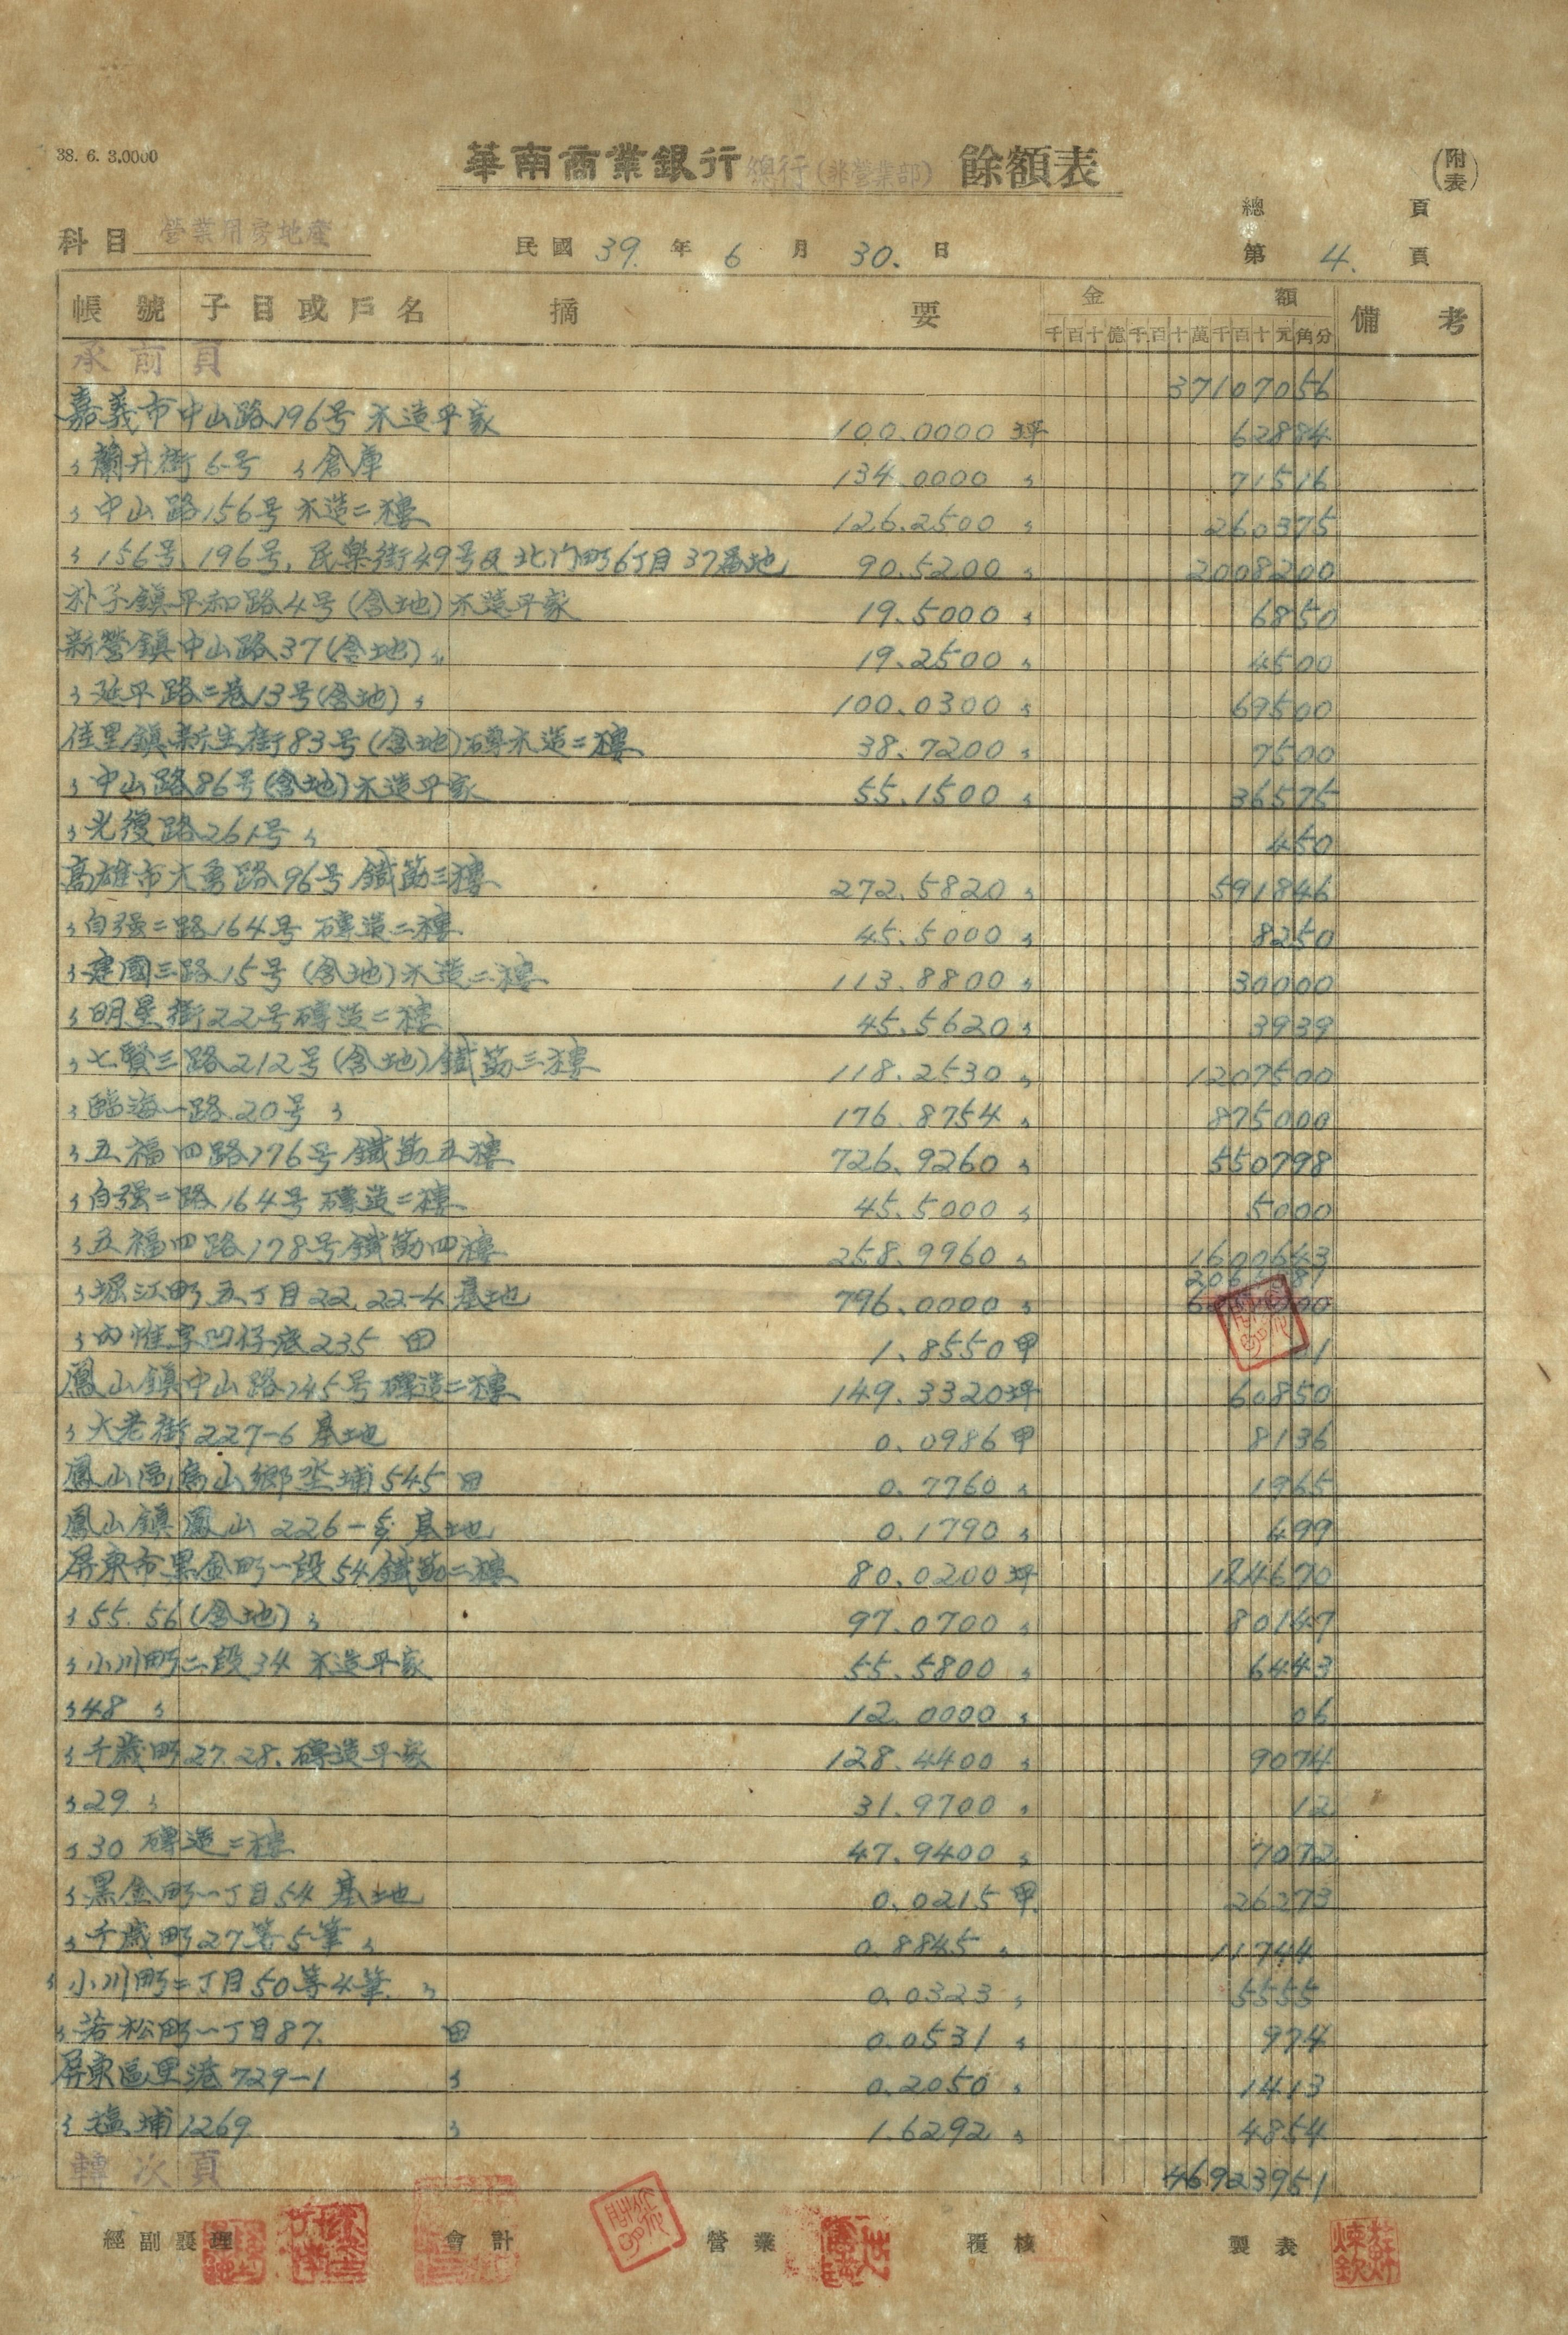 38. 6. 3.0000
華南商業銀行總行(非營業部) 餘額表
(附表)
總 頁
科目 營業用房地產 民國 39. 年 6 月 30. 日 第 4. 頁
帳號 子目或戶名 摘 要 金額 備考
千百十億千百十萬千百十元角分
承前頁 37107056
嘉義市中山路196号 木造平家 100.0000 坪 62884
〃蘭井街6号 〃倉庫 134.0000 〃 71516
〃中山路156号 木造二樓 126.2500 〃 260375
〃156号、196号, 民樂街49号及北門町6丁目37番地 90.5200 〃 2008200
朴子鎮平和路4号(含地)木造平家 19.5000 〃 6850
新營鎮中山路37(含地)〃 19.2500 〃 4500
〃延平路二巷13号(含地)〃 100.0300 〃 69500
佳里鎮新生街83号(含地)磚木造二樓 38.7200 〃 7500
〃中山路86号(含地)木造平家 55.1500 〃 36575
〃光復路261号〃 450
高雄市大勇路96号 鐵筋三樓 272.5820 〃 591846
〃自强二路164号 磚造二樓 45.5000 〃 8250
〃建國三路15号(含地)木造二樓 113.8800 〃 30000
〃明星街22号磚造二樓 45.5620 〃 3939
〃七賢三路212号(含地)鐵筋三樓 118.2530 〃 1207500
〃臨海一路20号 〃 176.8754 〃 875000
〃五福四路176号 鐵筋五樓 726.9260 〃 550798
〃自强二路164号 磚造二樓 45.5000 〃 5000
〃五福四路178号鐵筋四樓 258.9960 〃 1600643
〃堀江町五丁目22, 22-4 基地 796.0000 〃
〃內惟字凹仔底235 田 1.8550 甲
鳳山鎮中山路245号 磚造二樓 149.3320 坪 60850
〃大老街227-6 基地 0.0986 甲 8136
鳳山區鳥山鄉坔埔545 田 0.7760 〃 1965
鳳山鎮鳳山 226- 基地 0.1790 〃 499
屏東市黑金町一段54 鐵筋二樓 80.0200 坪 124670
〃55.56(含地)〃 97.0700 〃 80147
〃小川町二段34 木造平家 55.5800 〃 6443
〃48 〃 12.0000 〃 06
〃千歲町27.28.磚造平家 128.4400 〃 9074
〃29 〃 31.9700 〃 12
〃30 磚造二樓 47.9400 〃 7072
〃黑金町一丁目54 基地 0.0215 甲 26273
〃千歲町27等5筆 〃 0.8845 〃 11744
〃小川町二丁目50等4筆 〃 0.0323 〃 5555
〃若松町一丁目87. 田 0.0531 〃 974
屏東區里港729-1 〃 0.2050 〃 1413
〃塩埔1269 〃 1.6292 〃 4854
轉次頁 46923951
經副襄理 會計 營業 覆核 製表 蘇煉欽